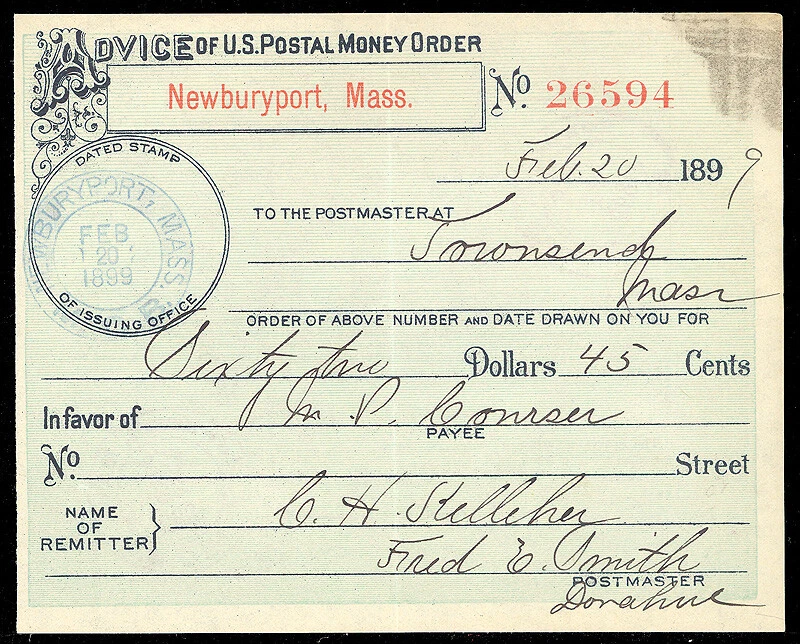 ADVICE OF U.S. POSTAL MONEY ORDER
Newburyport, Mass.
No. 26594
DATED STAMP
NEWBURYPORT, MASS.
FEB
20
1899
OF ISSUING OFFICE
Feb. 20 1899
TO THE POSTMASTER AT
Townsend
Mass
ORDER OF ABOVE NUMBER AND DATE DRAWN ON YOU FOR
Sixty five Dollars 45 Cents
In favor of M. P. Courser
PAYEE
No. Street
NAME OF REMITTER } C. H. Kelleher
Fred E. Smith
POSTMASTER
Donahue